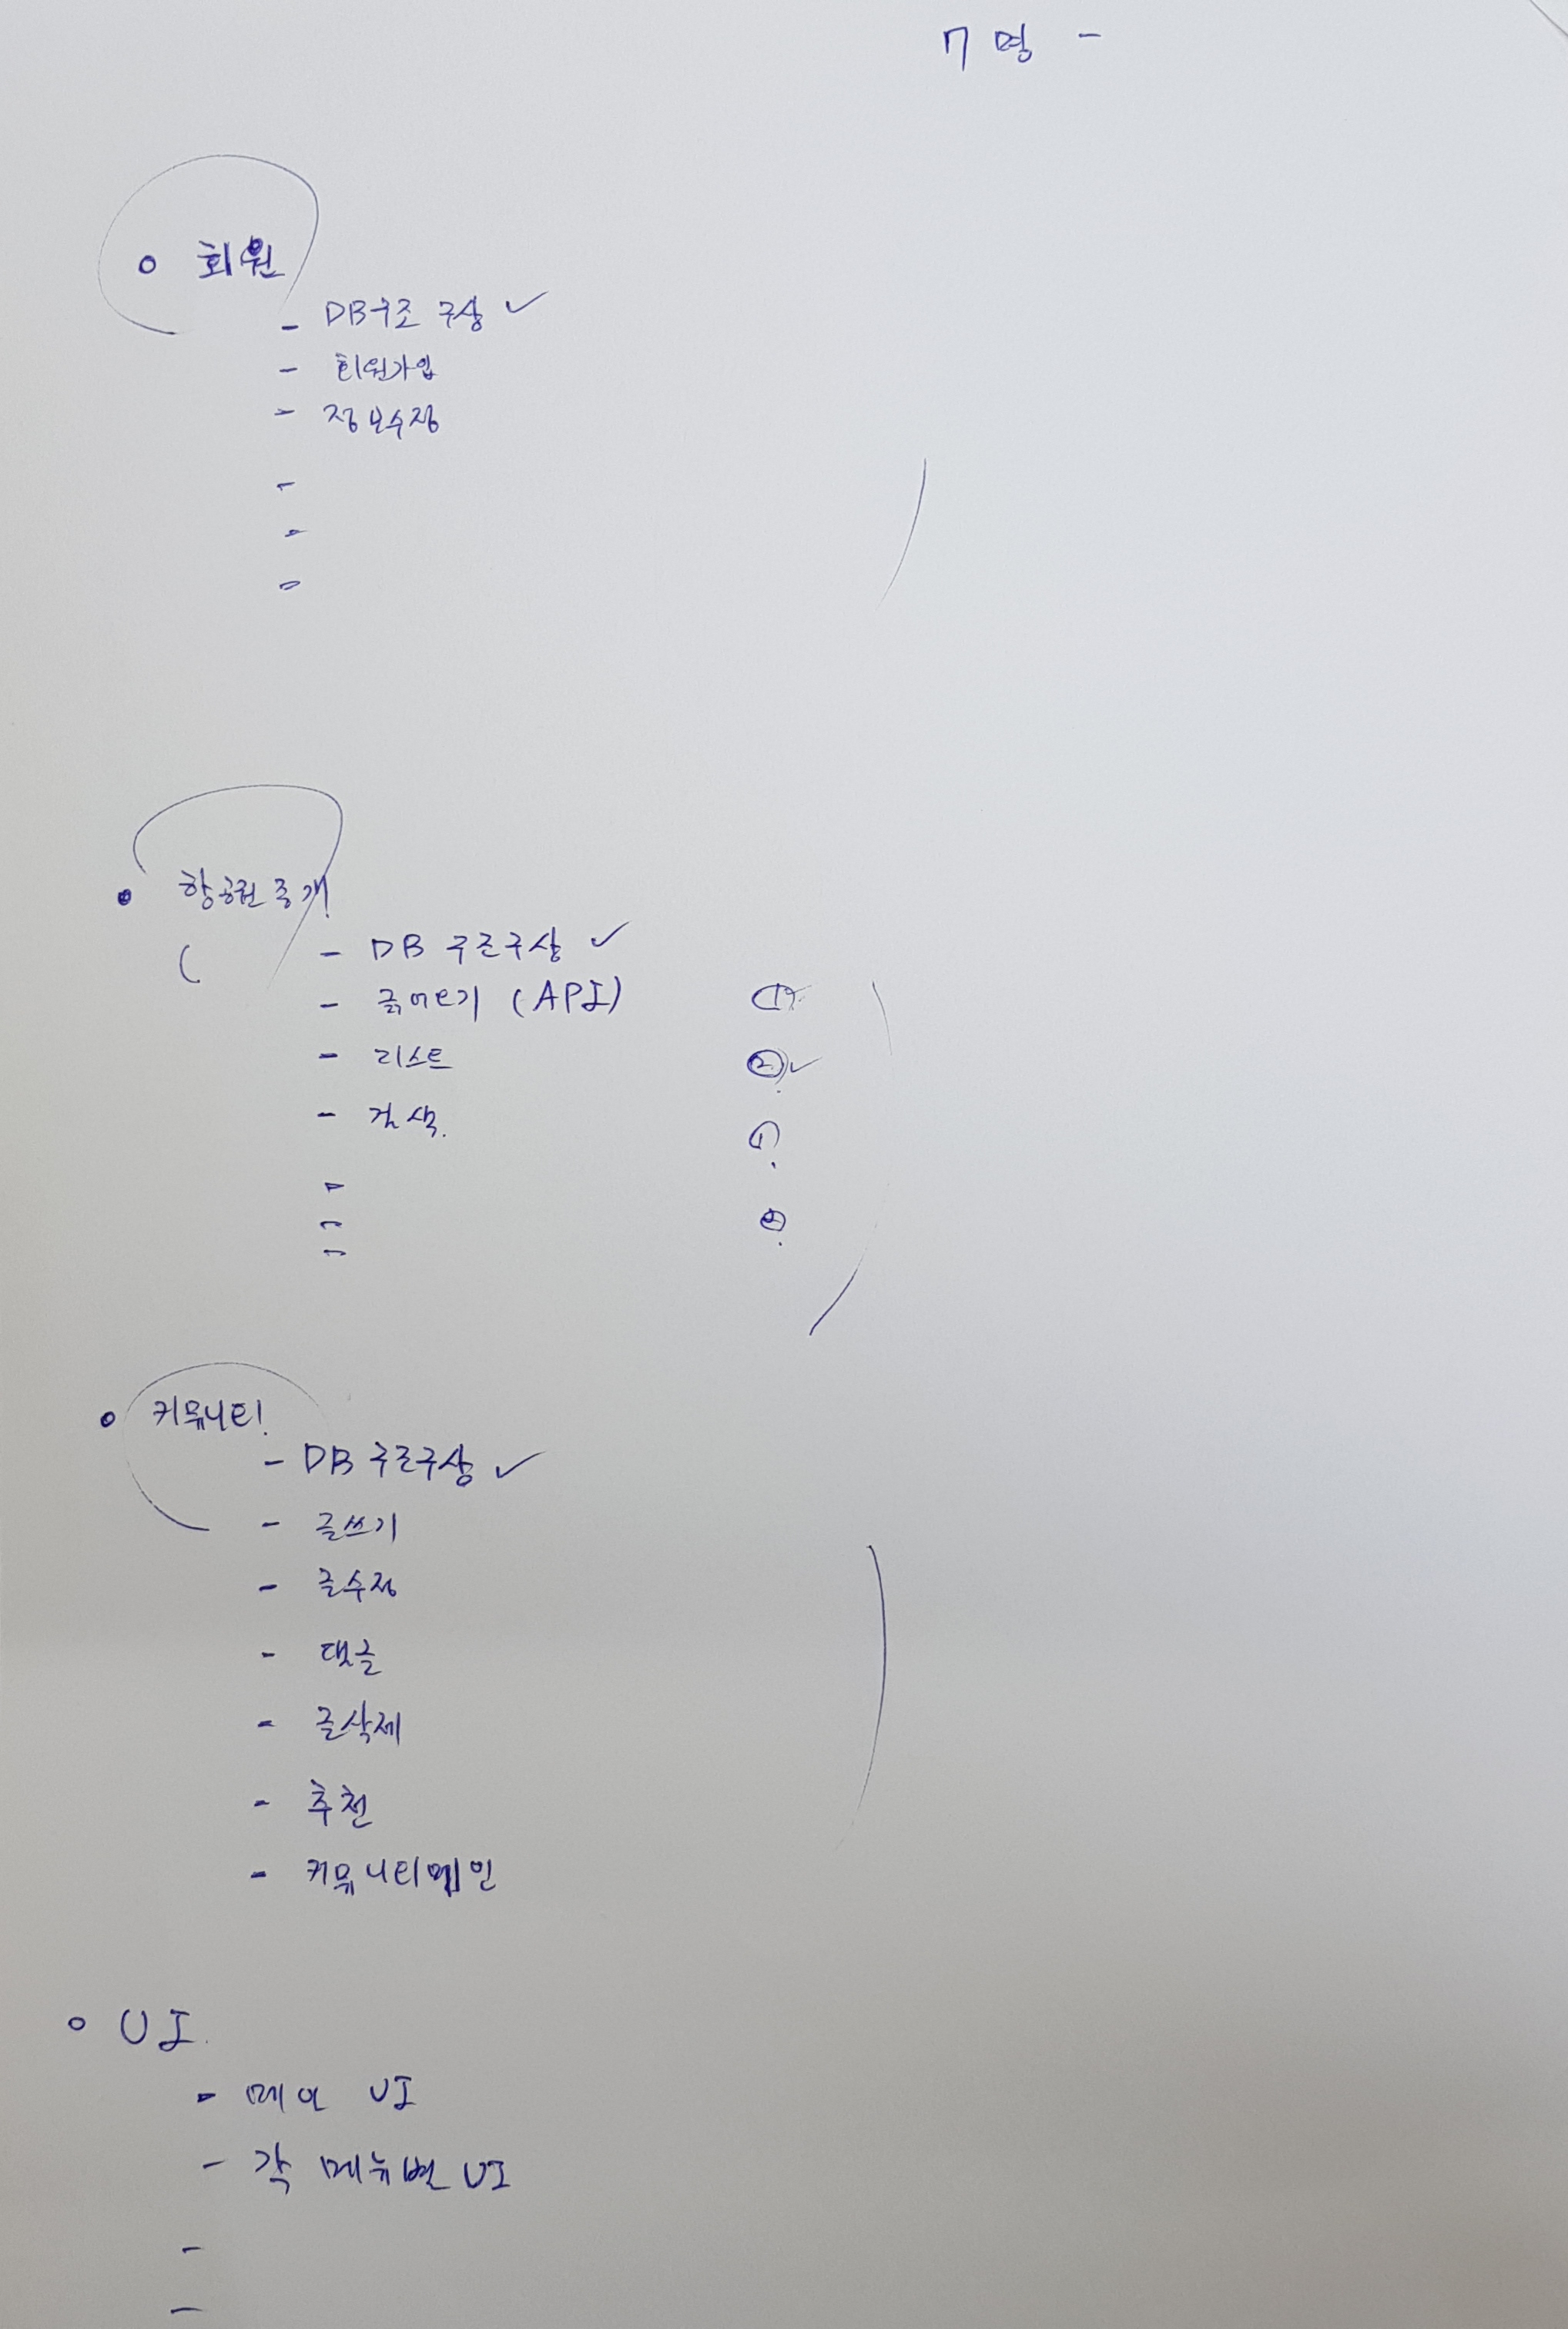 7 명 -
○ 회원
- DB구조 구상 ✓
- 회원가입
- 정보수정
-
-
-
• 항공권 중개
(
- DB 구조구상 ✓
- 긁어오기 (API)
- 리스트
② ✓
- 검색.
①
-
②
-
-
○ 커뮤니티!
- DB 구조구상 ✓
- 글쓰기
- 글수정
- 댓글
- 글삭제
- 추천
- 커뮤니티메인
○ UI.
- 메인 UI
- 각 메뉴별 UI
-
-